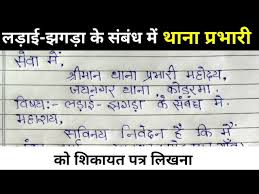 लड़ाई-झगड़ा के संबंध में थाना प्रभारी
सेवा में,
श्रीमान थाना प्रभारी महोदय,
जयनगर थाना, कोडरमा
विषय:- लड़ाई-झगड़ा के संबंध में
महाशय,
सविनय निवेदन है कि मैं
को शिकायत पत्र लिखना